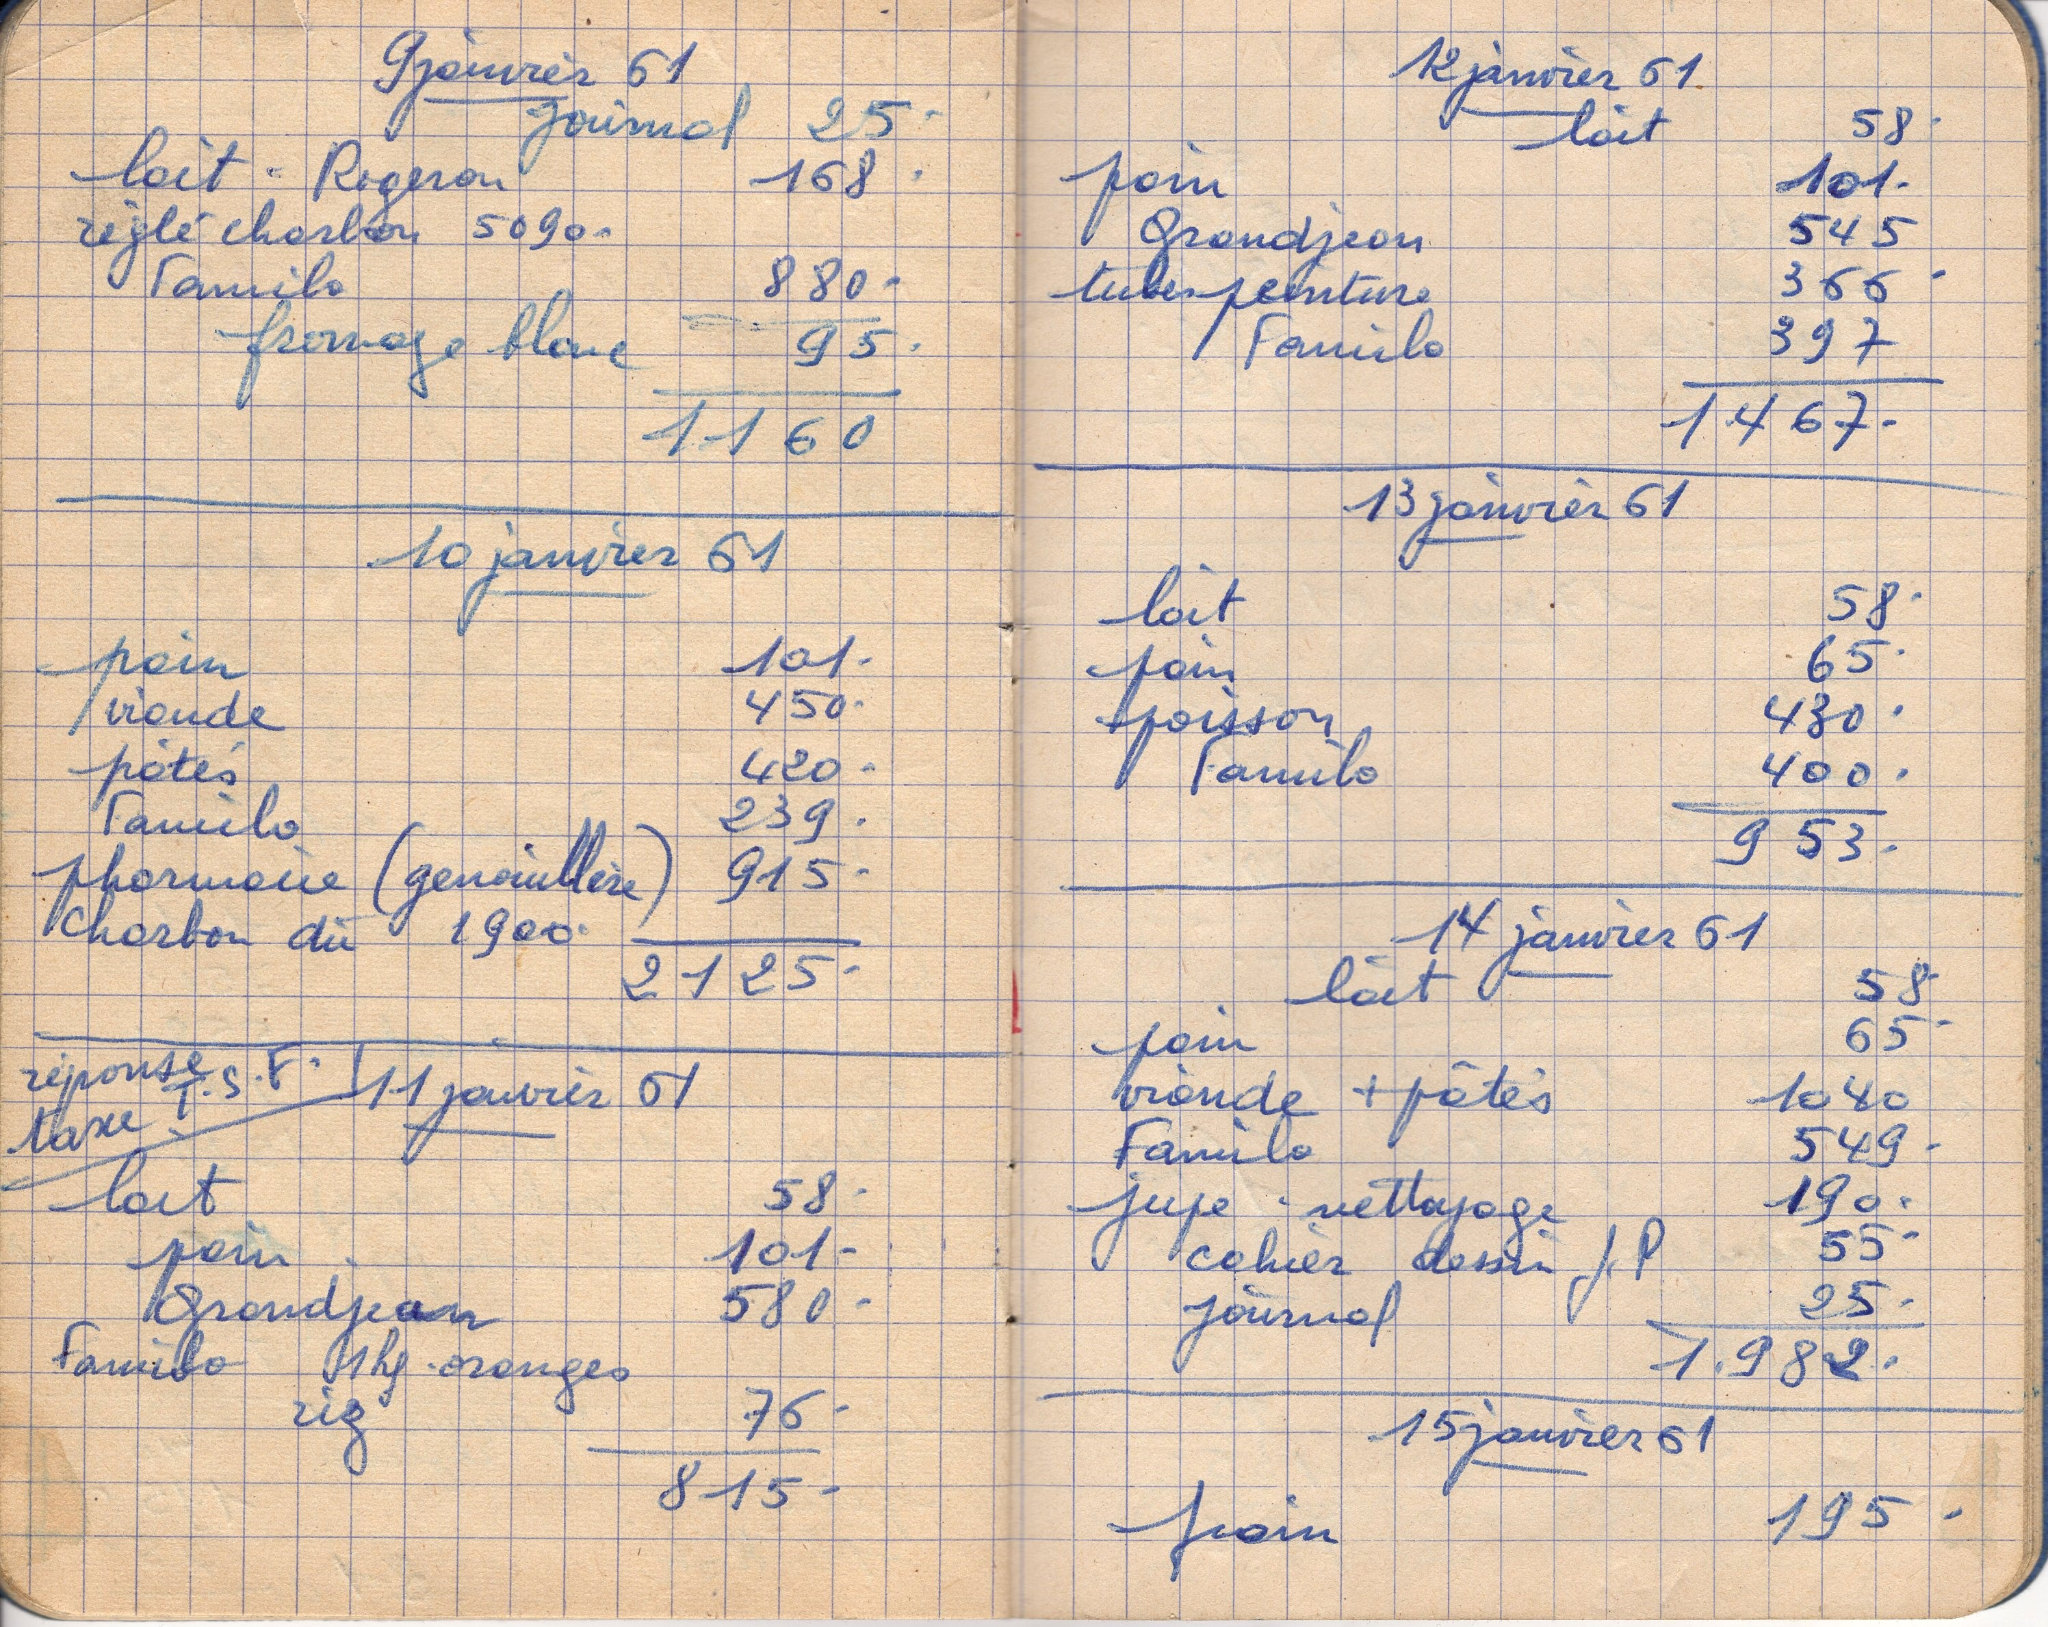 9 janvier 61
journal 25.
lait - Rogeron 168.
réglé charbon 5090.
Familo 880.
fromage blanc 95.
1160
10 janvier 61
pain 101.
viande 450.
pâtés 420.
Familo 239.
pharmacie (genouillère) 915.
Charbon dû 1900.
2125.
réponse
taxe T.S.F.
11 janvier 61
lait 58.
pain 101.
Grandjean 580.
Familo 1kg oranges
riz 76.
815.
12 janvier 61
lait 58.
pain 101.
Grandjean 545
tubes peinture 366.
Familo 397
1467.
13 janvier 61
lait 58.
pain 65.
poisson 430.
Familo 400.
953.
14 janvier 61
lait 58
pain 65.
viande + pâtés 1040
Familo 549.
jupe - nettoyage 190.
cahier dessin J.P 55.
journal 25.
1.982.
15 janvier 61
pain 195.